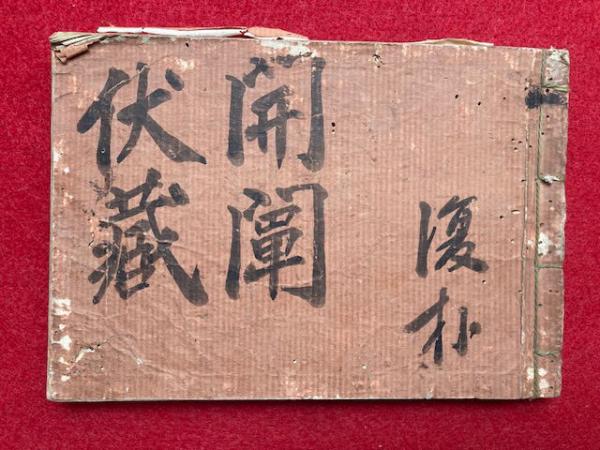 復朴
開闡
伏藏